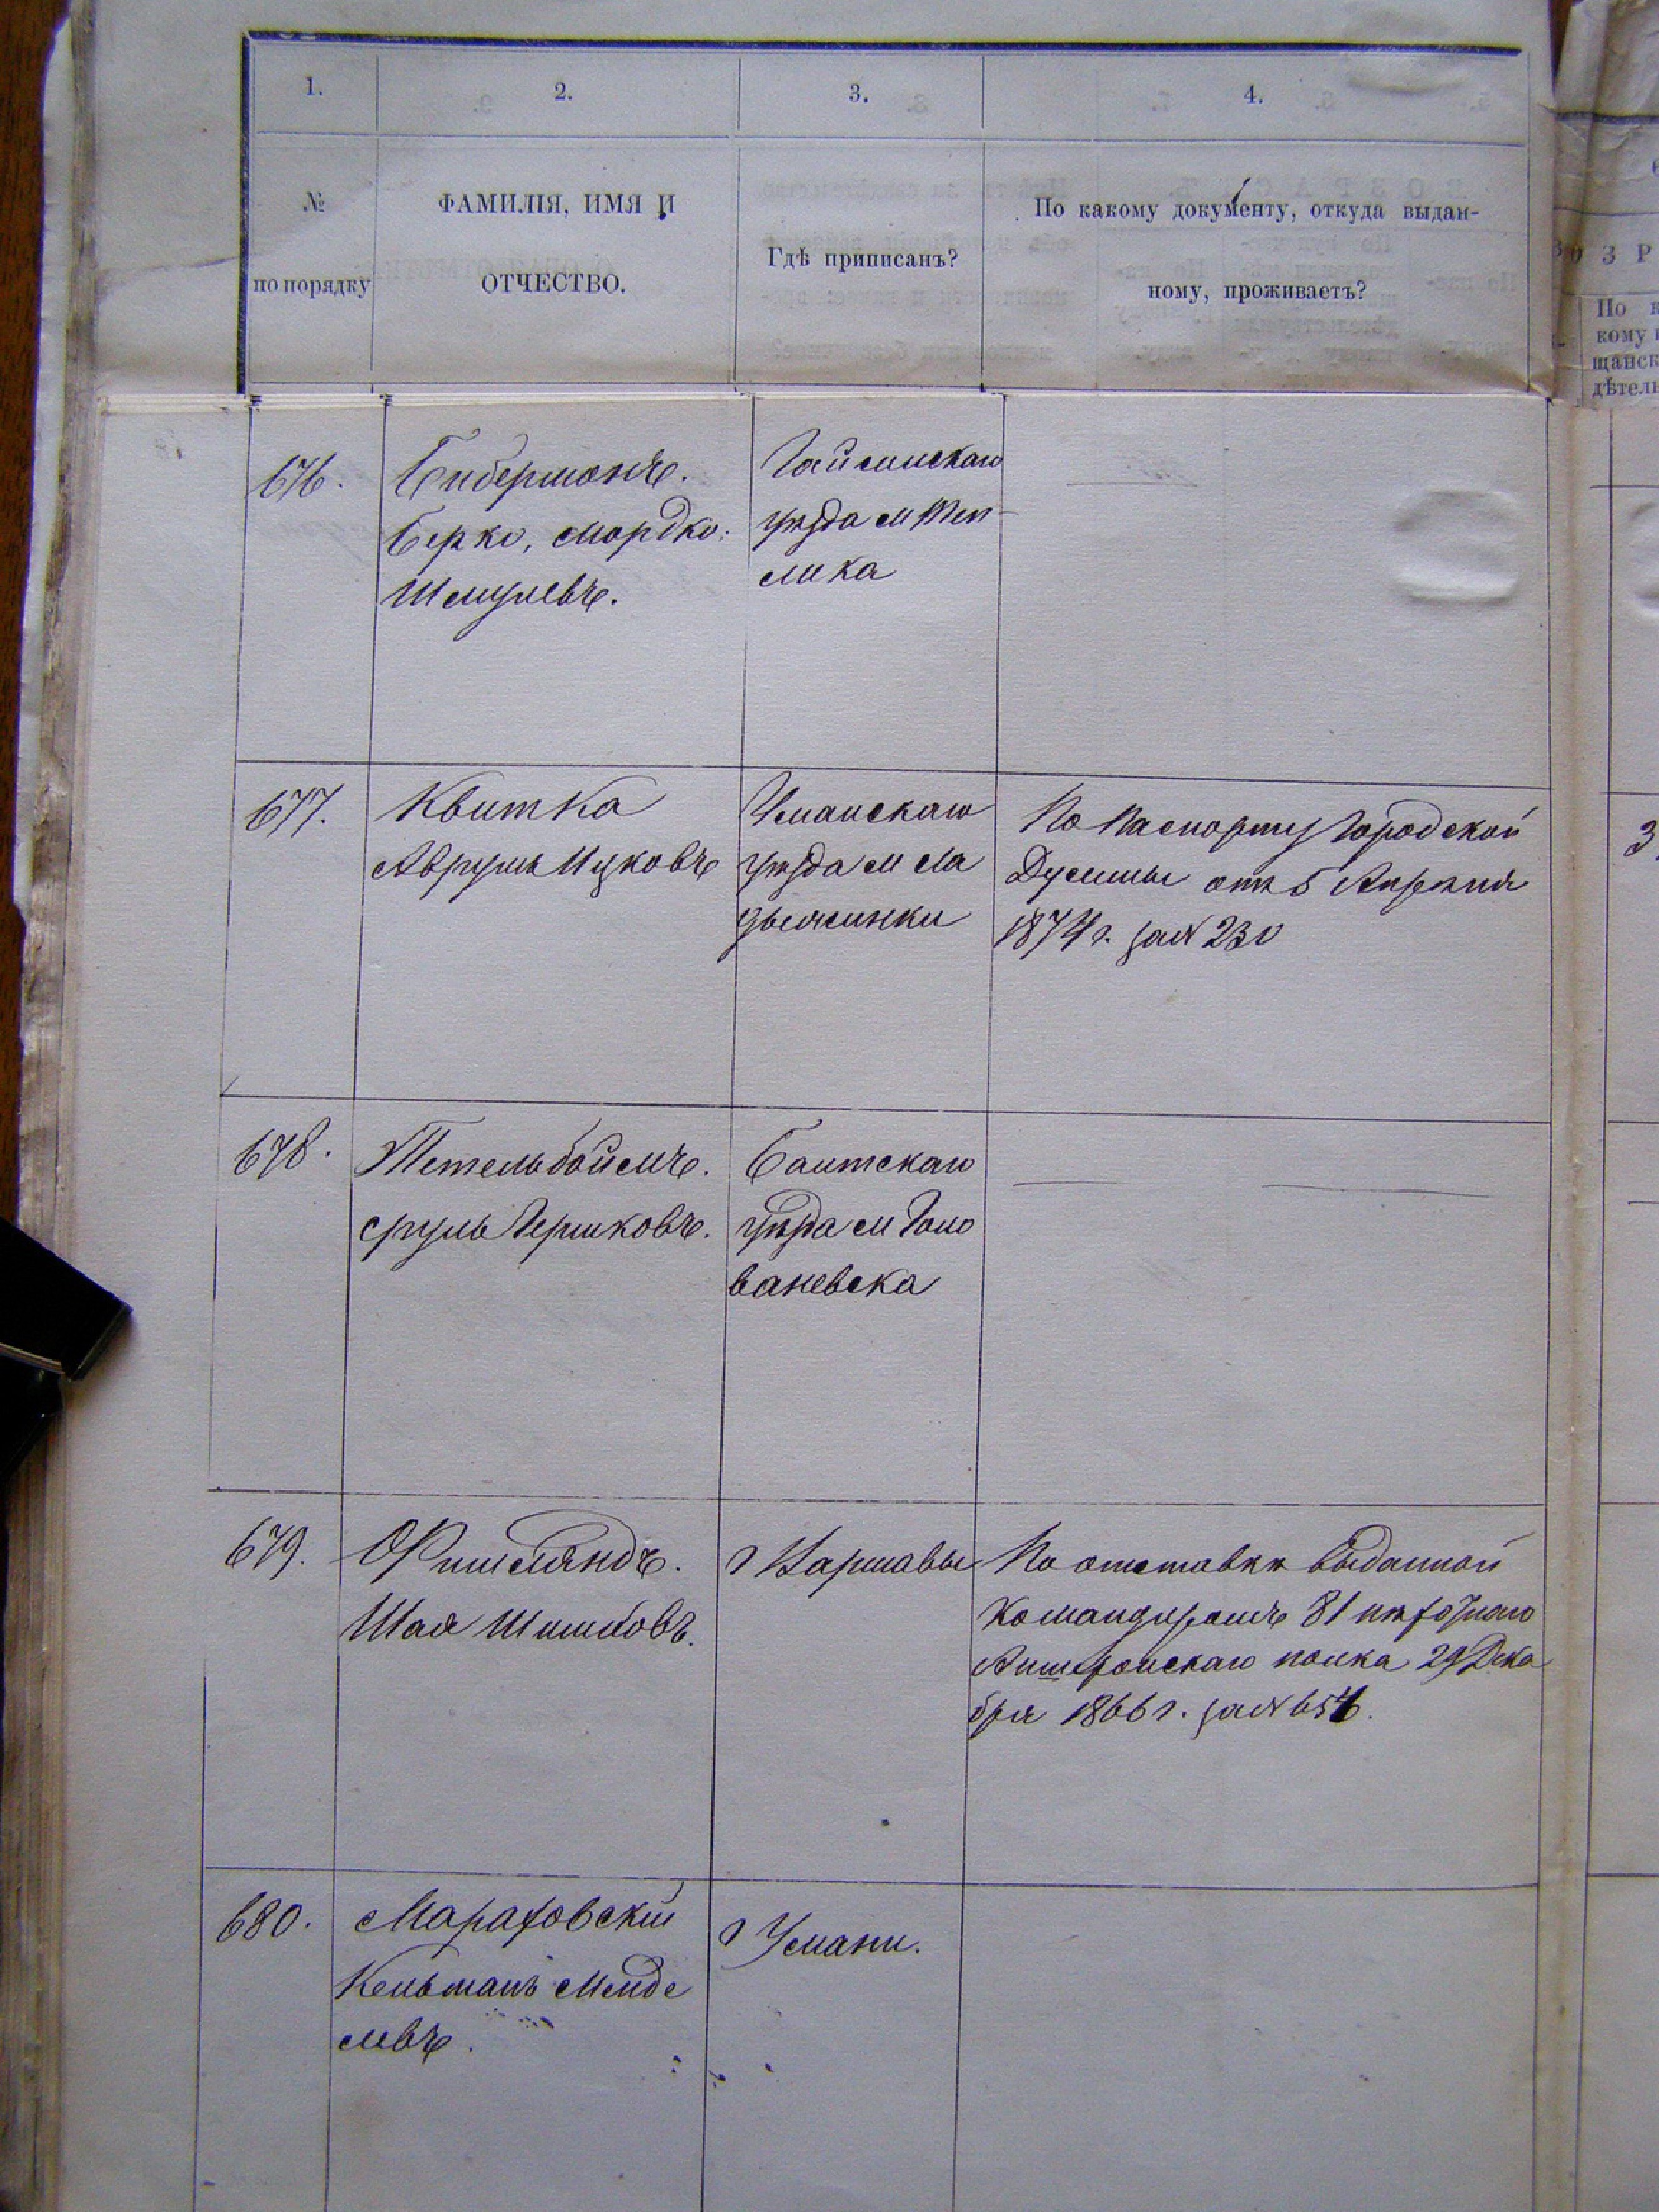 1.
2.
3.
4.
№
по порядку
ФАМИЛІЯ, ИМЯ И
ОТЧЕСТВО.
Гдѣ приписанъ?
По какому документу, откуда выдан-
ному, проживаетъ?
О З Р
По к
кому
щанск
дѣтель
676.
Биберманъ.
Берко, Мордко
Шмулевъ.
Гайсинскаго
уѣзда м Теп-
лика
677.
Квитка
Аврумъ Ицковъ
Уманскаго
уѣзда м Ла
дыжинки
По Паспорту Городской
Думы отъ 5 Апрѣля
1874 г. за № 230
3
678.
Тетельбоймъ.
Сруль Гершковъ.
Балтскаго
уѣзда м Голо
ваневска
679.
Фишляндъ.
Шая
г Варшавы
По отставкѣ выданной
Командиромъ 81 пѣхотнаго
Апшеронскаго полка 29 Дека
бря 1866 г. за № 654.
680.
Мараховскій
Кельманъ Менде
левъ.
г Умани.